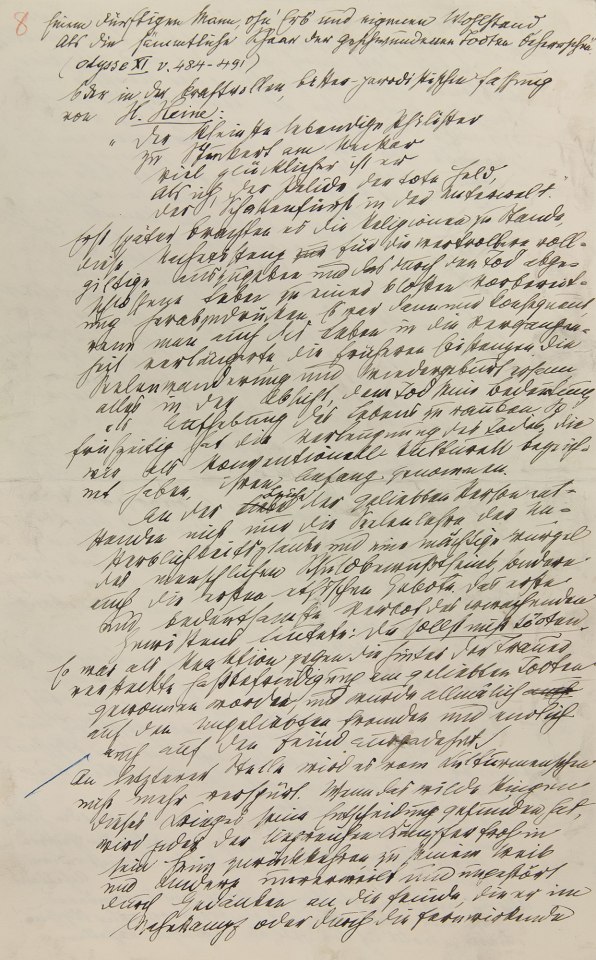 8
Einem dürftigen Mann, ohn' Erb und eigenen Wohlstand
Als die sämmtliche Schaar der geschwundenen Todten beherrschen.
(Odyssee XI v. 484-491)
Oder in der kraftvollen, bitter-parodistischen Fassung
von H. Heine:
„Der kleinste lebendige Philister
zu Stuckert am Neckar
viel glücklicher ist er
Als ich, der Pelide, der tote Held,
Der Schattenfürst in der Unterwelt."
Erst später brachten es die Religionen zu Stande,
diese Nachexistenz für die wertvollere, voll-
giltige auszugeben und das durch den Tod abge-
schlossene Leben zu einer blossen Vorbereit-
ung herabzudrücken. Es war dann nur konsequent
wenn man auch das Leben in die Vergangen-
heit verlängerte, die früheren Existenzen, die
Seelenwanderung und Wiedergeburt ersann,
alles in der Absicht, dem Tod seine Bedeutung
als Aufhebung des Lebens zu rauben. So
frühzeitig hat die Verleugnung des Todes, die
wir als konventionell-kulturell bezeich-
net haben, ihren Anfang genommen.
An der Leiche der geliebten Person ent-
standen nicht nur die Seelenlehre, der Un-
sterblichkeitsglaube und eine mächtige Wurzel
des menschlichen Schuldbewusstseins, sondern
auch die ersten ethischen Gebote. Das erste
und bedeutsamste Verbot des erwachenden
Gewissens lautete: Du sollst nicht tödten.
Es war als Reaktion gegen die hinter der Trauer
versteckte Hassbefriedigung am geliebten Todten
gewonnen worden, und wurde allmälich
auf den ungeliebten Fremden und endlich
auch auf den Feind ausgedehnt.
An letzterer Stelle wird es vom Kulturmenschen
nicht mehr verspürt. Wenn das wilde Ringen
dieses Krieges seine Entscheidung gefunden hat,
wird jeder der siegreichen Kämpfer froh in
sein Heim zurückkehren, zu seinem Weib
und Kindern, unverweilt und ungestört
durch Gedanken an die Feinde, die er im
Nahekampf oder durch die fernwirkende